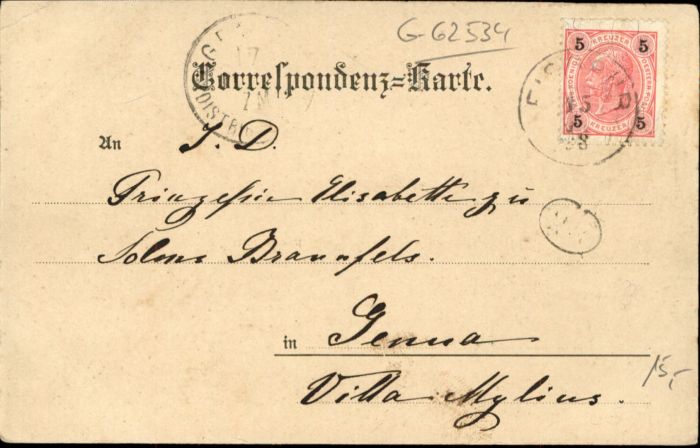 G-62534
5 KREUZER 5
5 KREUZER 5
Correspondenz=Karte.
An J. D.
Prinzessin Elisabeth zu
Solms Braunfels.
in Genua
Villa Mylius.
15,-